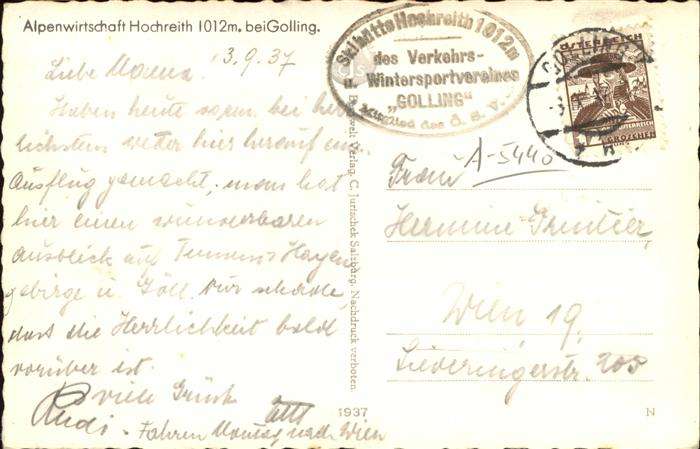 Alpenwirtschaft Hochreith 1012m. bei Golling.
3.9.37
Liebe Mama!
Haben heute sogar bei herr
lichstem wetter hier herauf ein
Ausflug gemacht, man hat
hier einen wunderbaren
Ausblick auf Tennen- Hagen
gebirge u Göll. Nur schade,
dass die Herrlichkeit bald
vorüber ist.
viele Grüsse
Rudi
- Fahren Montag nach Wien
Skihütte Hochreith 1012m
des Verkehrs-
u. Wintersportvereines
„GOLLING"
Mitglied des Ö. S. V.
ÖSTERREICH
Verlag C. Jurischek Salzburg. Nachdruck verboten.
A-5440
Frau
Hermine
Wien 19.
Sieveringerstr. 205
1937
N